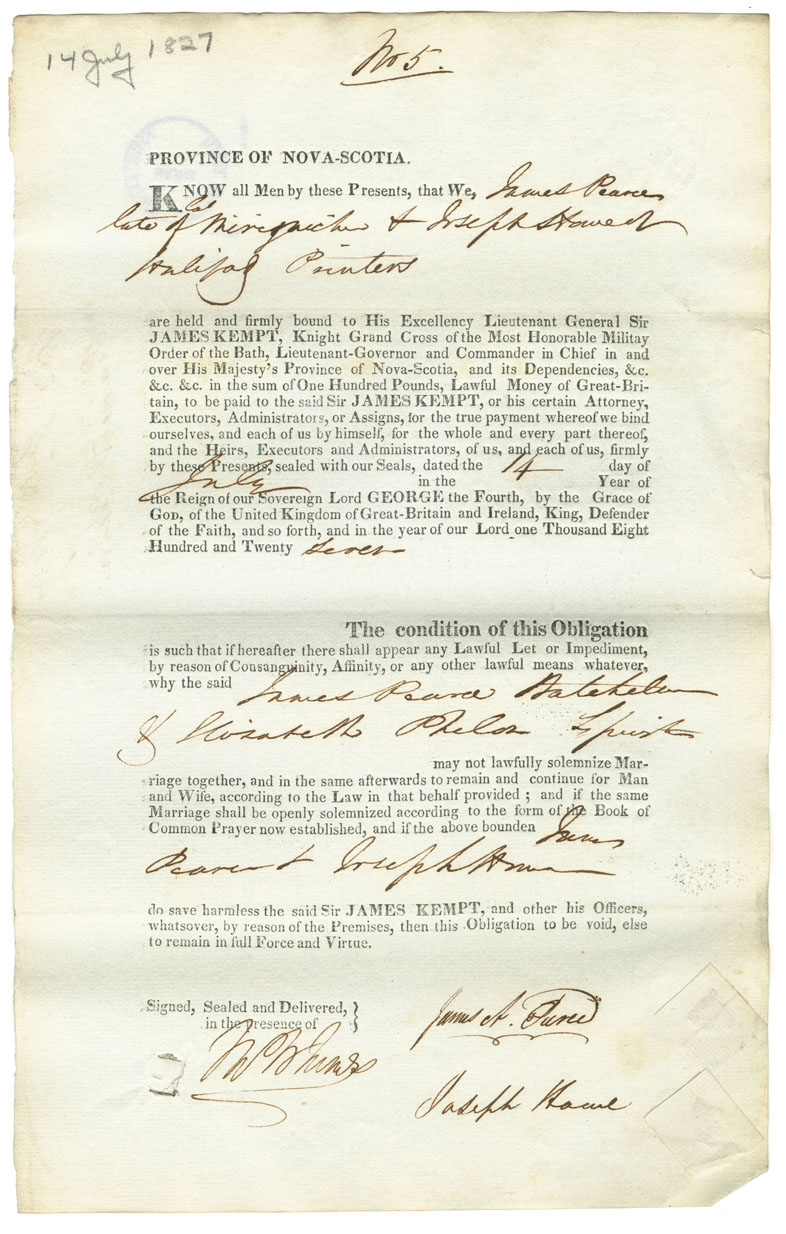 14 July 1827
No 5.
PROVINCE OF NOVA-SCOTIA.
KNOW all Men by these Presents, that We, James Pearce
late of & Joseph Howe of
Halifax Printers
are held and firmly bound to His Excellency Lieutenant General Sir
JAMES KEMPT, Knight Grand Cross of the Most Honorable Militay
Order of the Bath, Lieutenant-Governor and Commander in Chief in and
over His Majesty's Province of Nova-Scotia, and its Dependencies, &c.
&c. &c. in the sum of One Hundred Pounds, Lawful Money of Great-Bri-
tain, to be paid to the said Sir JAMES KEMPT, or his certain Attorney,
Executors, Administrators, or Assigns, for the true payment whereof we bind
ourselves, and each of us by himself, for the whole and every part thereof,
and the Heirs, Executors and Administrators, of us, and each of us, firmly
by these Presents, sealed with our Seals, dated the 14 day of
July in the Year of
the Reign of our Sovereign Lord GEORGE the Fourth, by the Grace of
GOD, of the United Kingdom of Great-Britain and Ireland, King, Defender
of the Faith, and so forth, and in the year of our Lord one Thousand Eight
Hundred and Twenty seven
The condition of this Obligation
is such that if hereafter there shall appear any Lawful Let or Impediment,
by reason of Consanguinity, Affinity, or any other lawful means whatever,
why the said James Pearce Batchelor
& Elizabeth Phelon Spinster
may not lawfully solemnize Mar-
riage together, and in the same afterwards to remain and continue for Man
and Wife, according to the Law in that behalf provided ; and if the same
Marriage shall be openly solemnized according to the form of the Book of
Common Prayer now established, and if the above bounden James
Pearce & Joseph Howe
do save harmless the said Sir JAMES KEMPT, and other his Officers,
whatsover, by reason of the Premises, then this Obligation to be void, else
to remain in full Force and Virtue.
Signed, Sealed and Delivered,
in the presence of
James A. Pearce
Joseph Howe